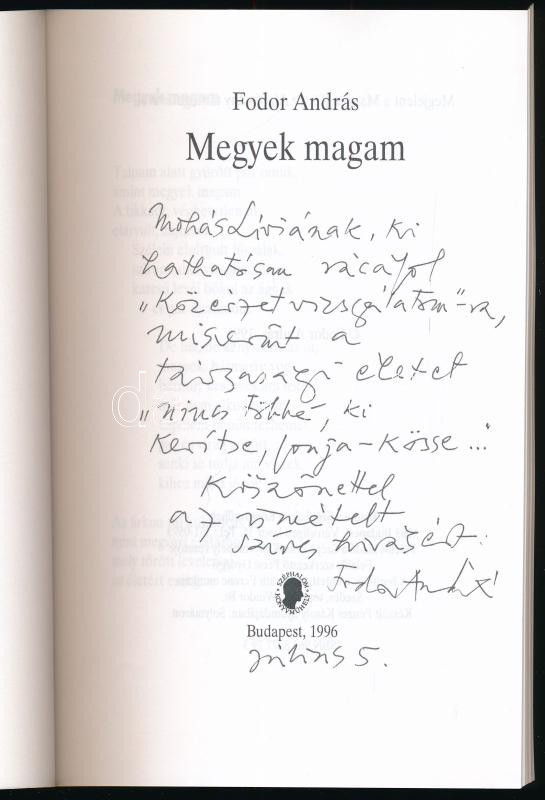 Fodor András
Megyek magam
Mohás Líviának, ki
hathatósan rácáfol
„Közérzetvizsgálatom"-ra,
miszerint a
társasági életet
„nincs többé, ki
kerítse, fonja-kösse..."
Köszönettel
az ismételt
szíves hívásért:
Fodor András
SZÉPHALOM KÖNYVMŰHELY
Budapest, 1996
július 5.